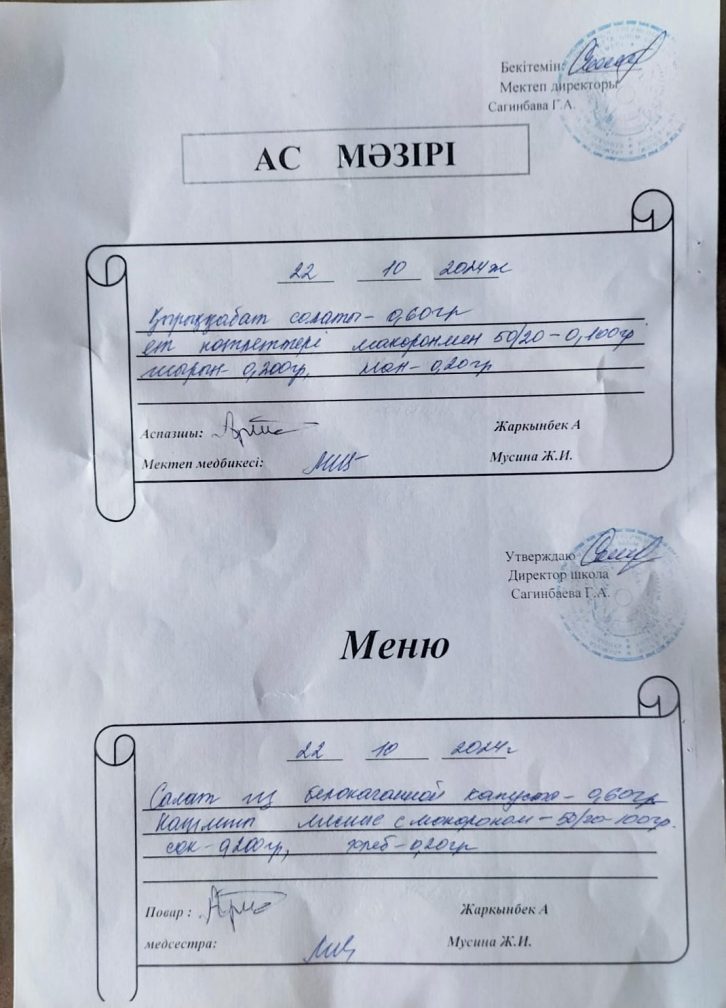 Бекітемін:
Мектеп директоры
Сагинбава Г.А.
АС МӘЗІРІ
22 10 2024ж
Қырыққабат солаты - 0,60гр
ет котлеттері макоронмен 50/20 - 0,100гр
шырын - 0,200гр, нан - 0,20гр
Аспазшы: Жаркынбек А
Мектеп медбикесі: Мусина Ж.И.
Утверждаю
Директор школа
Сагинбаева Г.А.
Меню
22 10 2024г
Салат из белокаганной капуста - 0,60гр
мясные с макороном - 50/20-100гр.
сок - 0,200гр, хлеб - 0,20гр
Повар : Жаркынбек А
медсестра: Мусина Ж.И.